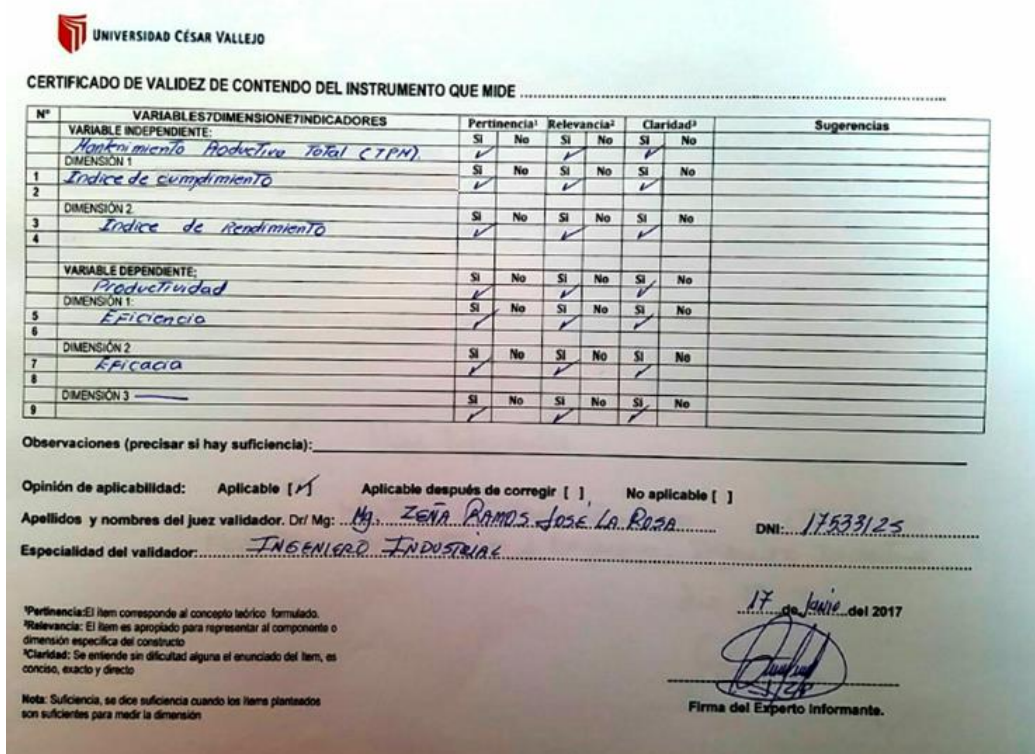 UNIVERSIDAD CÉSAR VALLEJO
CERTIFICADO DE VALIDEZ DE CONTENDO DEL INSTRUMENTO QUE MIDE ........................
Nº VARIABLES7DIMENSIONE7INDICADORES Pertinencia¹ Relevancia² Claridad³ Sugerencias
VARIABLE INDEPENDIENTE: Si No Si No Si No
Mantenimiento Productivo Total (TPM). ✓ ✓ ✓
DIMENSIÓN 1 Si No Si No Si No
1 Indice de cumplimiento ✓ ✓ ✓
2
DIMENSIÓN 2 Si No Si No Si No
3 Indice de Rendimiento ✓ ✓ ✓
4
VARIABLE DEPENDIENTE: Si No Si No Si No
Productividad ✓ ✓ ✓
DIMENSIÓN 1: Si No Si No Si No
5 Eficiencia ✓ ✓ ✓
6
DIMENSIÓN 2 Si No Si No Si No
7 Eficacia ✓ ✓ ✓
8
DIMENSIÓN 3 Si No Si No Si No
9 ✓ ✓ ✓
Observaciones (precisar si hay suficiencia):
Opinión de aplicabilidad: Aplicable [✓] Aplicable después de corregir [ ] No aplicable [ ]
Apellidos y nombres del juez validador. Dr/ Mg: Mg. ZEÑA RAMOS JOSE LA ROSA DNI: 17533125
Especialidad del validador: INGENIERO INDUSTRIAL
17 de Junio del 2017
¹Pertinencia:El item corresponde al concepto teórico formulado.
²Relevancia: El item es apropiado para representar al componente o
dimensión especifica del constructo
³Claridad: Se entiende sin dificultad alguna el enunciado del item, es
conciso, exacto y directo
Nota: Suficiencia, se dice suficiencia cuando los items planteados
son suficientes para medir la dimensión
Firma del Experto Informante.